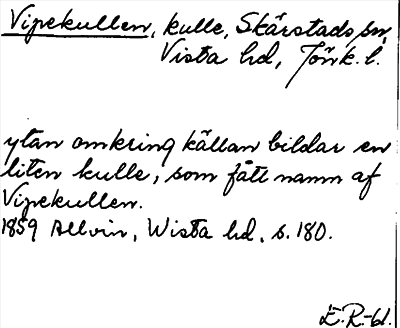 Vipekullen, kulle, Skärstads sn,
Vista hd, Jönk. l.
ytan omkring källan bildar en
liten kulle, som fått namn af
Vipekullen.
1859 Allvin, Wista hd, s. 180.
E.R.-61.